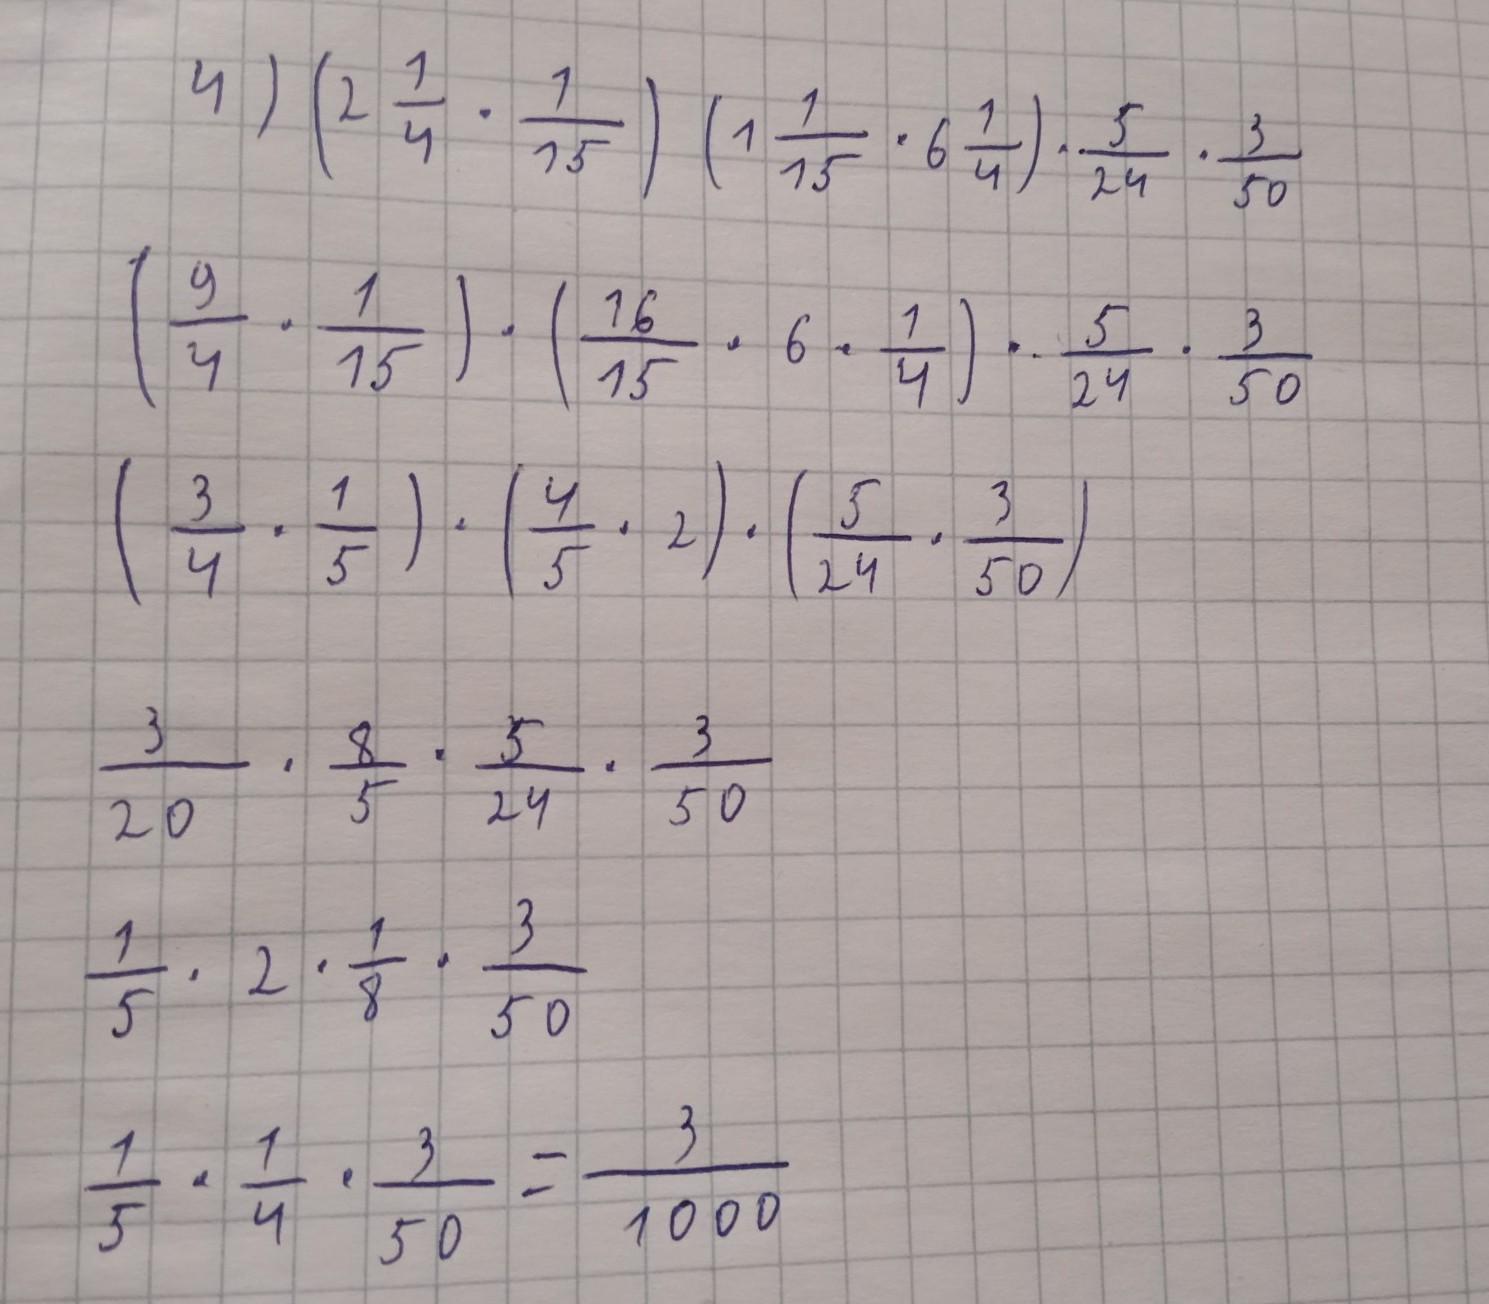 4) (2 1/4 · 1/15) (1 1/15 · 6 1/4) · 5/24 · 3/50
(9/4 · 1/15) · (16/15 · 6 · 1/4) · 5/24 · 3/50
(3/4 · 1/5) · (4/5 · 2) · (5/24 · 3/50)
3/20 · 8/5 · 5/24 · 3/50
1/5 · 2 · 1/8 · 3/50
1/5 · 1/4 · 3/50 = 3/1000